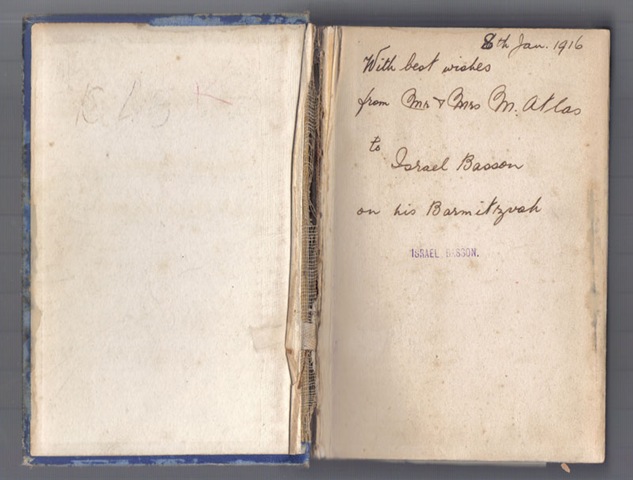 8th Jan. 1916
With best wishes
from Mr & Mrs M. Atlas
to
Israel Basson
on his Barmitzvah
ISRAEL BASSON.